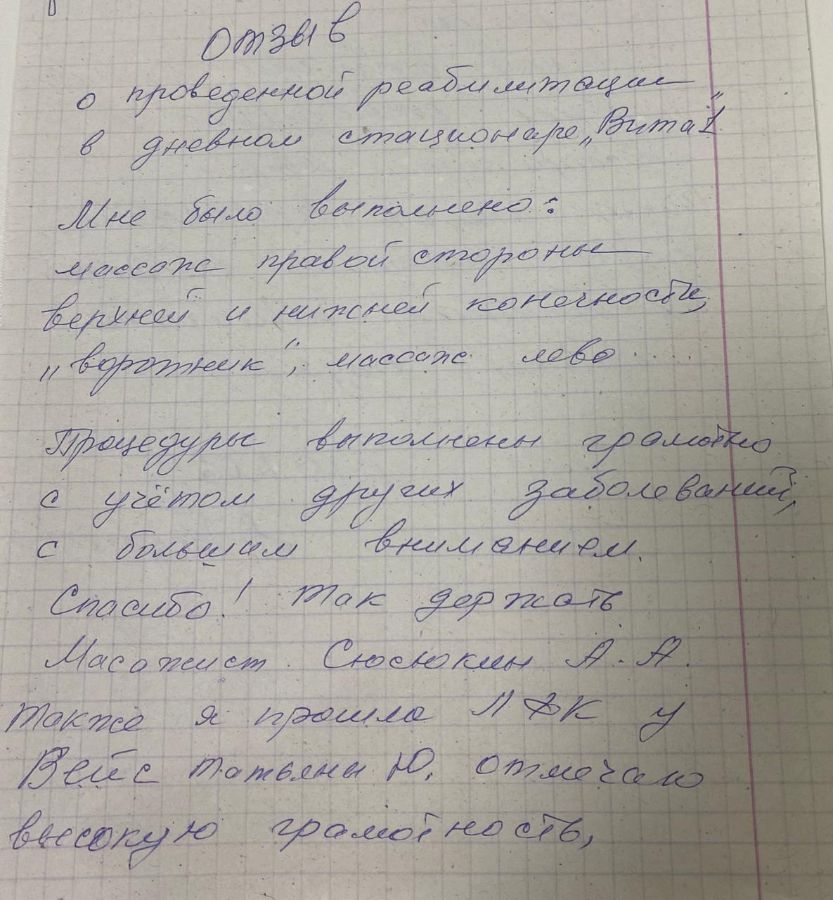 Отзыв
о проведенной реабилитации
в дневном стационаре „Вита 1"
Мне было выполнено:
массаж правой стороны
верхней и нижней конечности,
„воротник", массаж лево....
Процедуры выполнены грамотно
с учётом других заболеваний,
с большим вниманием.
Спасибо! Так держать
Масажист Сюсюкин А. А.
Также я прошла ЛФК у
Вейс Татьяны Ю. отмечаю
высокую грамотность,